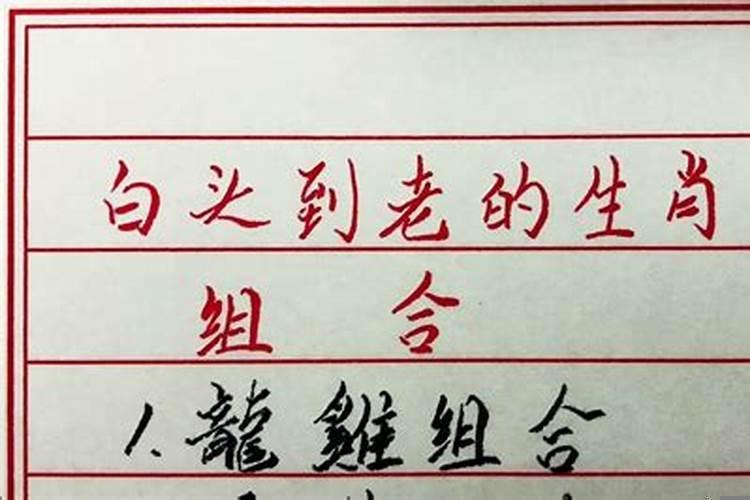 白头到老的生肖
组合
1.龍雞组合